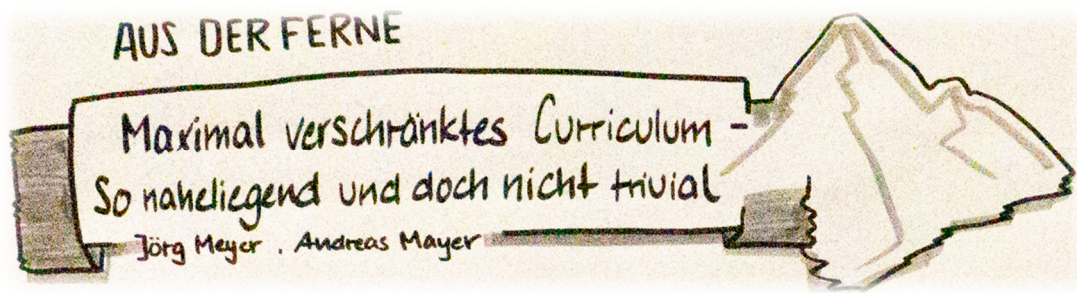 AUS DER FERNE
Maximal verschränktes Curriculum -
So naheliegend und doch nicht trivial
Jörg Meyer . Andreas Mayer